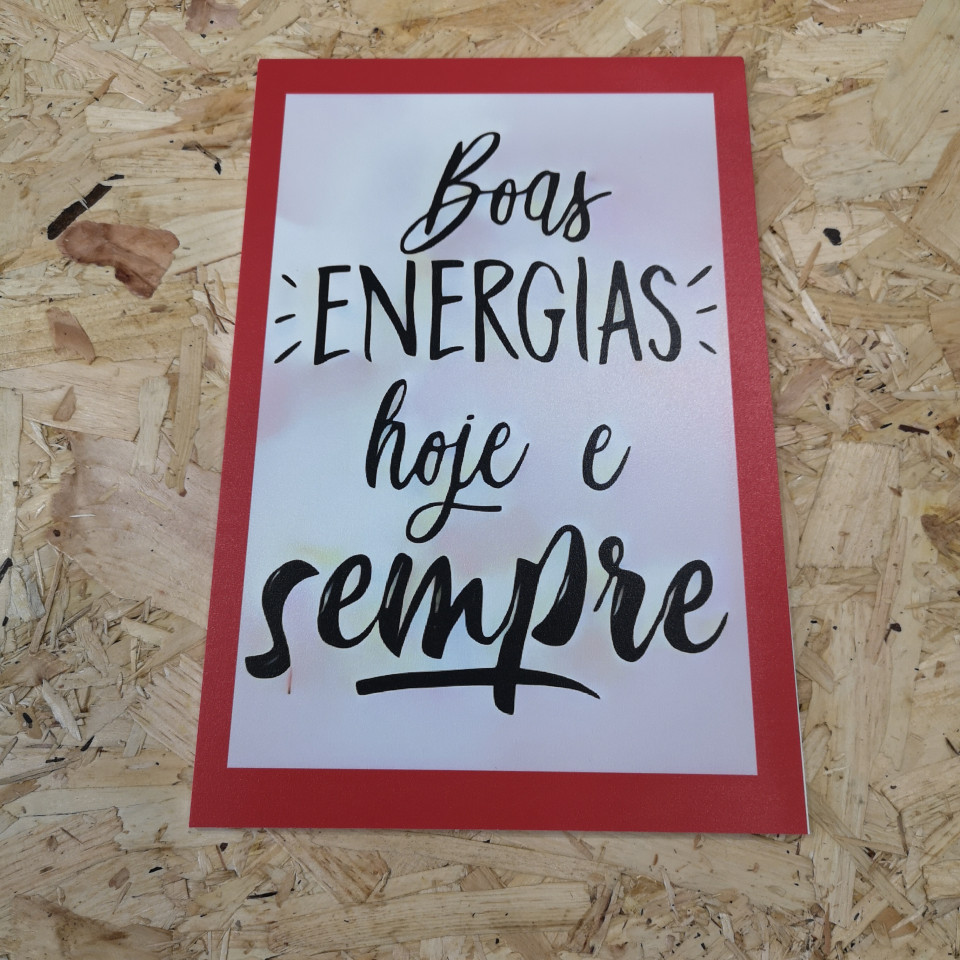 Boas
ENERGIAS
hoje e
sempre